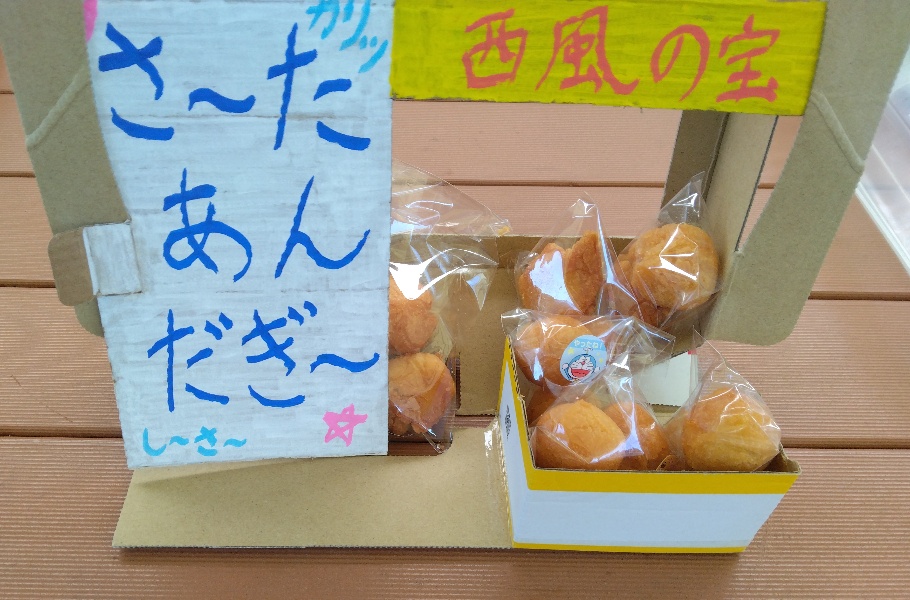 カリッ
さ～た
あん
だぎ～
し～さ～
西風の宝
やったね!